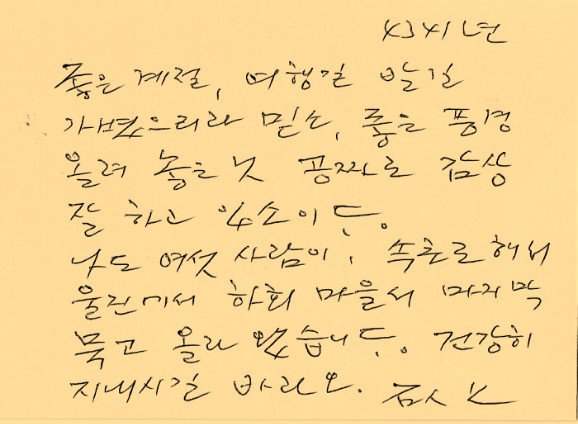 4341년
좋은 계절, 여행길 발길
가볍었으리라 믿소, 좋은 풍경
올려 놓은 것 공짜로 감상
잘 하고 있소이다.
나도 여섯 사람이, 속초로 해서
울진에서 하회 마을서 마지막
묵고 올라 왔습니다. 건강히
지내시길 바라오.